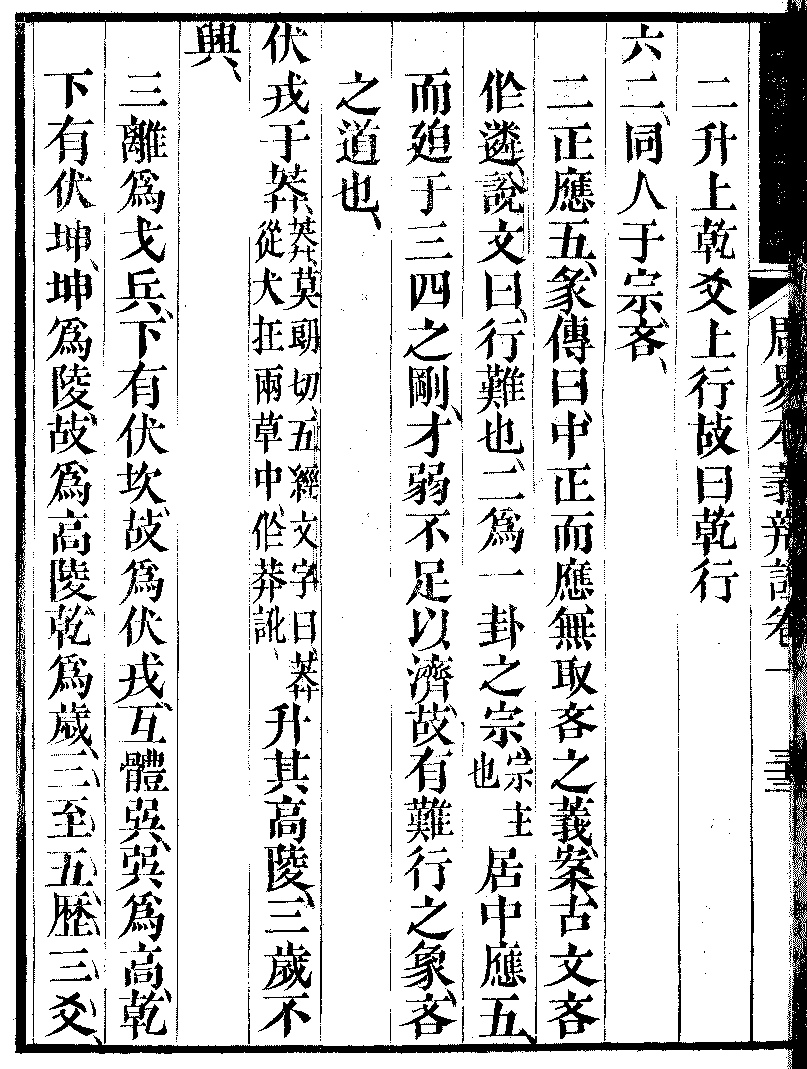 周易本義辨証卷一
二升上乾爻上行故曰乾行
六二、同人于宗、吝、
二正應五、彖傳曰、中正而應無取吝之義、案、古文吝
作遴、說文曰、行難也、二爲一卦之宗、宗主也居中應五、
而廹于三四之剛、才弱不足以濟、故有難行之象、吝
之道也、
伏戎于莽、莽、莫朗切、五經文字曰、莽從犬在兩草中、作莽訛、升其高陵、三歲不
興、
三離爲戈兵、下有伏坎、故爲伏戎、互體巽、巽爲高、乾
下有伏坤、坤爲陵、故爲高陵、乾爲歲、三至五、歴三爻、